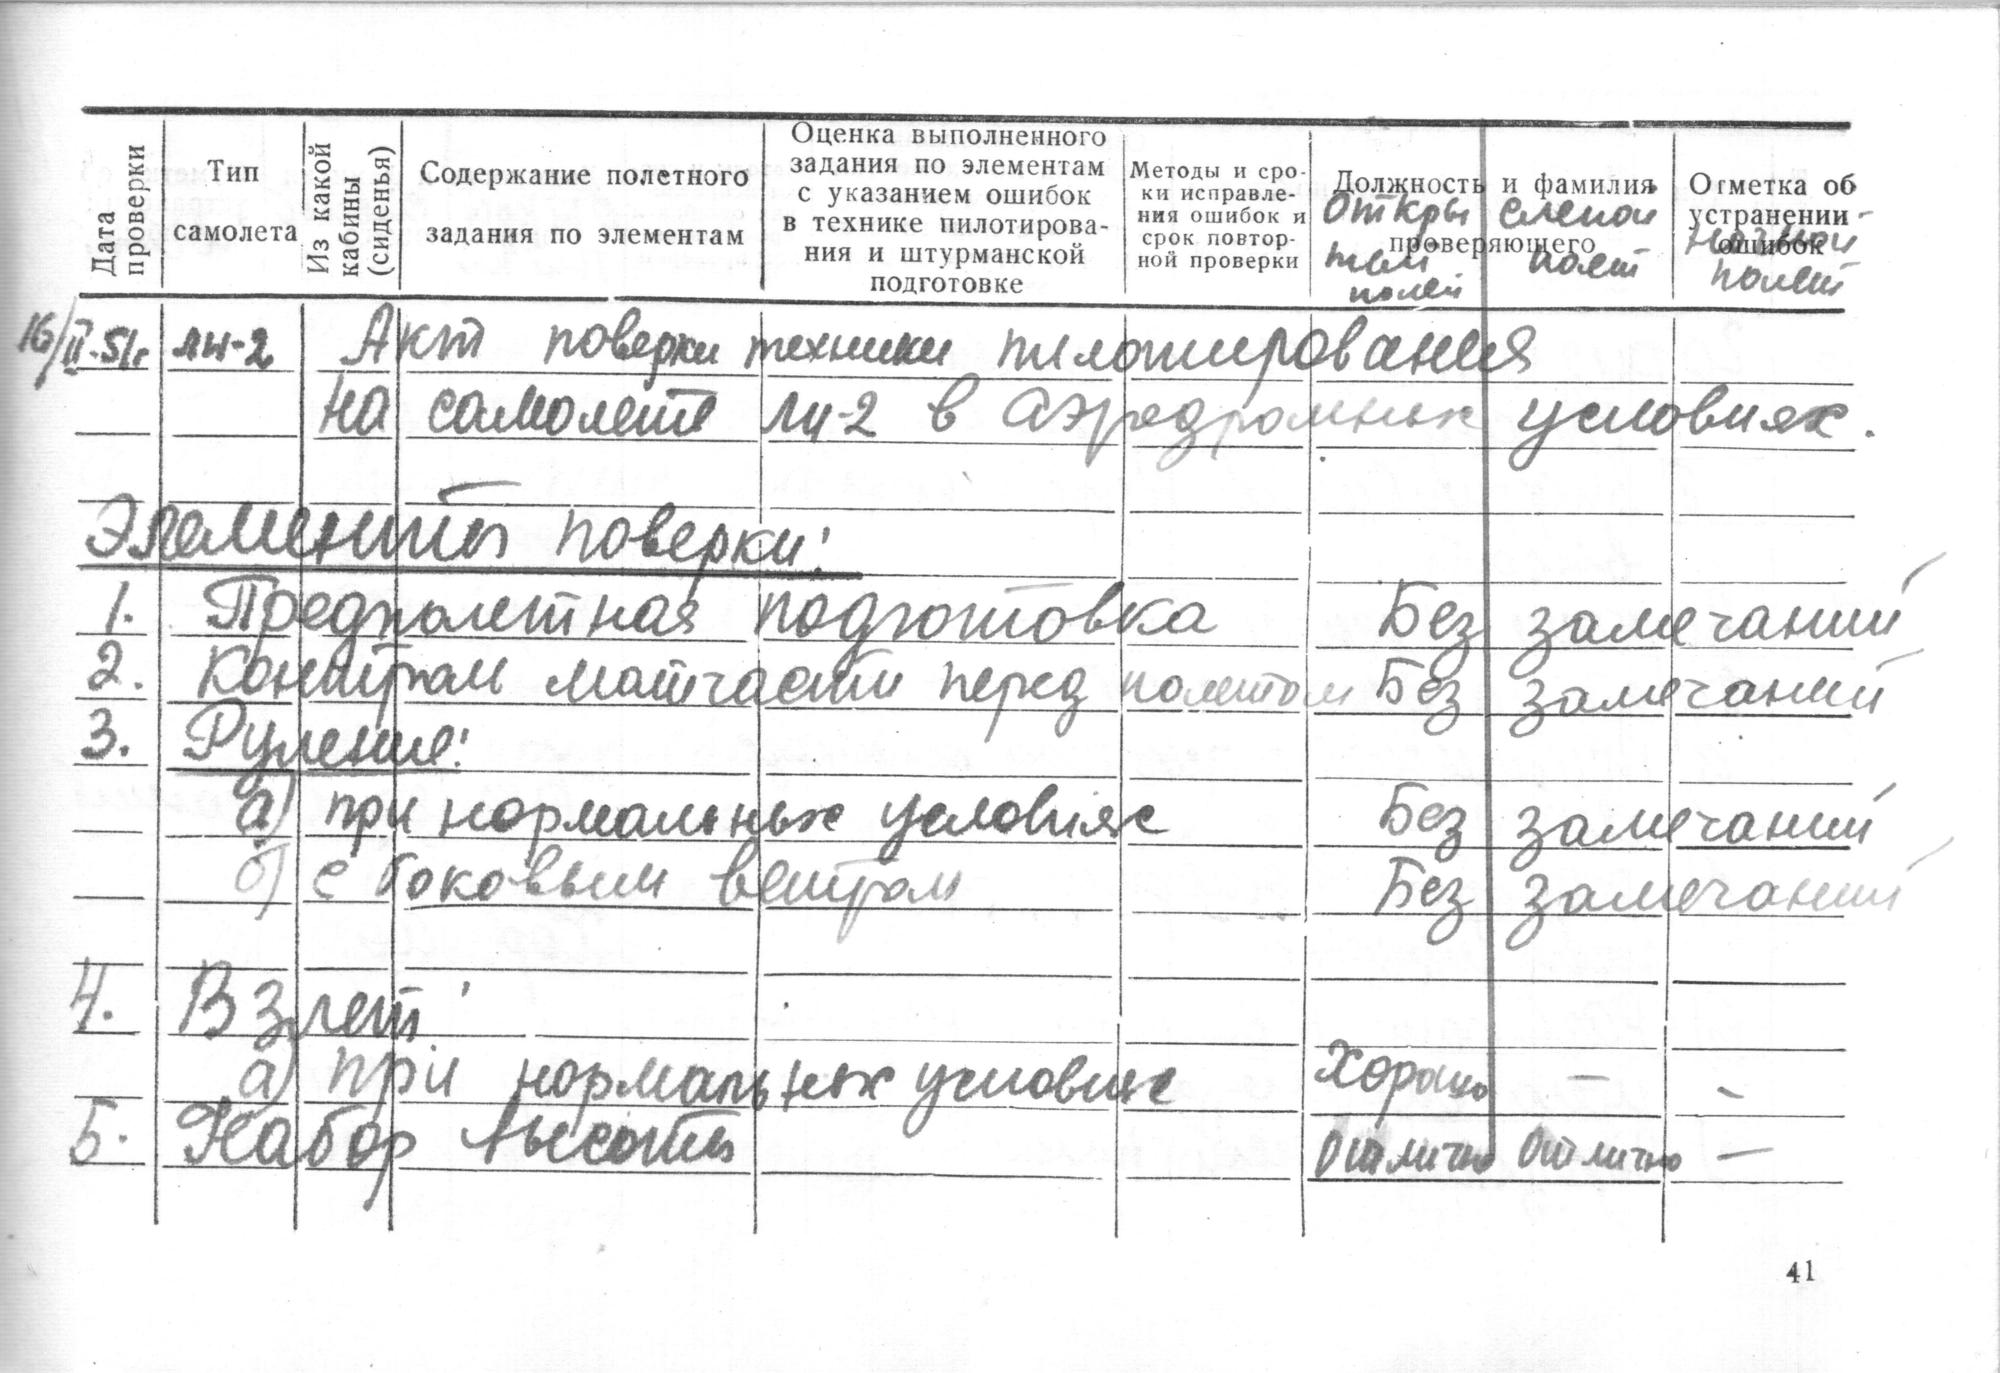 Дата проверки
Тип самолета
Из какой кабины (сиденья)
Содержание полетного задания по элементам
Оценка выполненного задания по элементам с указанием ошибок в технике пилотирования и штурманской подготовке
Методы и сроки исправления ошибок и срок повторной проверки
Должность и фамилия проверяющего
Отметка об устранении ошибок
Откры тый полет
слепой полет
ночной полет
16/II-51г. ЛИ-2 Акт поверки техники пилотирования
на самолете Ли-2 в аэродромных условиях.
Элементы поверки:
1. Предполетная подготовка Без замечаний
2. Контроль матчасти перед полетом Без замечаний
3. Руление:
а) при нормальных условиях Без замечаний
б) с боковым ветром Без замечаний
4. Взлет:
а) при нормальных условиях Хорошо — –
5. Набор высоты Отлично Отлично —
41